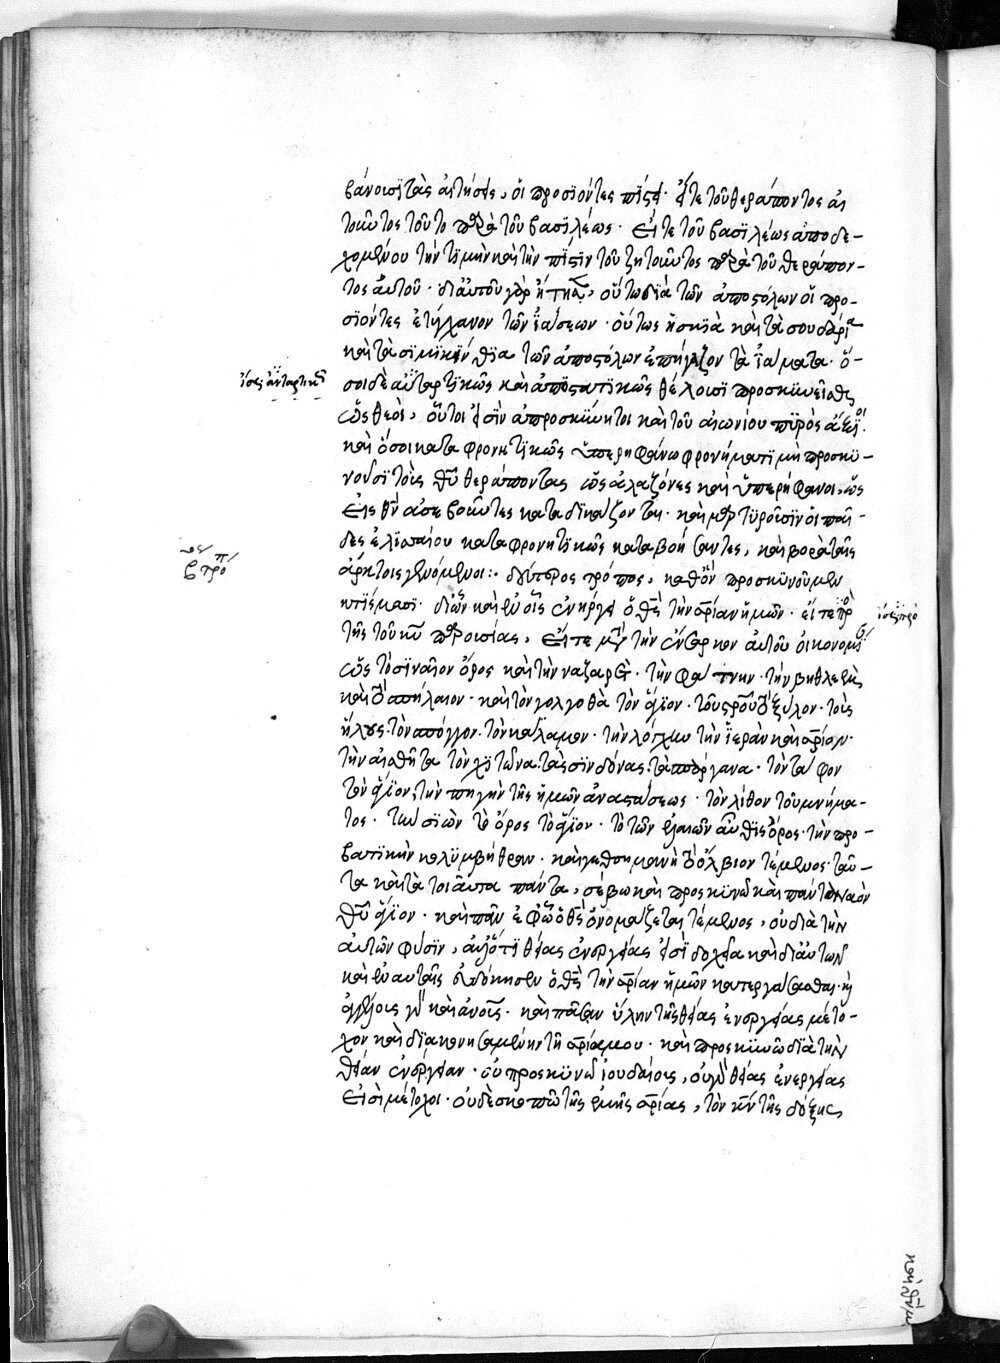 βάνουσι τὰς αἰτήσεις, οἱ προσιόντες πίστει· εἴτε τοῦ θεράποντος αἰ
τοῦντος τοῦτο παρὰ τοῦ βασιλέως· εἴτε τοῦ βασιλέως ἀποδε-
χομένου τὴν τιμὴν καὶ τὴν πίστιν τοῦ ζητοῦντος παρὰ τοῦ θεράπον-
τος αὐτοῦ· δι' αὐτοῦ γὰρ ᾔτησεν, οὕτω διὰ τῶν ἀποστόλων οἱ προ-
σιόντες ἐτύγχανον τῶν ἰάσεων· οὕτως ἡ σκιὰ καὶ τὰ σουδάρια
καὶ τὰ σιμικίνθια τῶν ἀποστόλων ἐπήγαζον τὰ ἰάματα· ὅ-
σοι δὲ ἀνταρτικῶς καὶ ἀποστατικῶς θέλουσι προσκυνεῖσθαι
ὡς θεοὶ, οὗτοί εἰσιν ἀπροσκύνητοι καὶ τοῦ αἰωνίου πυρὸς ἄξιοι·
καὶ ὅσοι καταφρονητικῶς ὑπερηφάνω φρονήματι μὴ προσκυ-
νοῦσι τοῖς θεοῦ θεράποντας ὡς ἀλαζόνες καὶ ὑπερήφανοι, ὡς
εἰς θεὸν ἀσεβοῦντες καταδικάζονται· καὶ μαρτυροῦσιν οἱ παῖ-
δες ἐλισσαίου καταφρονητικῶς καταβοήσαντες, καὶ βορὰ ταῖς
ἄρκτοις γενόμενοι:· δεύτερος τρόπος, καθ' ὃν προσκυνοῦμεν
κτίσμασι· δι' ὧν καὶ ἐν οἷς ἐνήργει ὁ θεὸς τὴν σωτηρίαν ἡμῶν· εἴτε πρὸ
τῆς τοῦ κυρίου παρουσίας, εἴτε μετὰ τὴν ἔνσαρκον αὐτοῦ οἰκονομίαν
ὡς τὸ σιναῖον ὄρος καὶ τὴν ναζαρὲτ· τὴν φάτνην· τὴν βηθλεὲμ
καὶ τὸ σπήλαιον· καὶ τὸν γολγοθὰ τὸν ἅγιον· τοῦ σταυροῦ τὸ ξύλον· τοὺς
ἥλους· τὸν σπόγγον· τὸν κάλαμον· τὴν λόγχην τὴν ἱερὰν καὶ σωτήριον·
τὴν αἰσθῆτα τὸν χιτῶνα· τὰς σινδόνας· τὰ σπάργανα· τὸν τάφον
τὸν ἅγιον, τὴν πηγὴν τῆς ἡμῶν ἀναστάσεως· τὸν λίθον τοῦ μνήμα-
τος· τὴν σιὼν τὸ ὄρος τὸ ἅγιον· τὸ τῶν ἐλαιῶν αὖθις ὄρος· τὴν προ-
βατικὴν κολυμβήθραν· καὶ γεθσημανὴ τὸ ὄλβιον τέμενος· ταῦ-
τα καὶ τὰ τοιαῦτα πάντα, σέβω καὶ προσκυνῶ καὶ πάντα ναὸν
θεοῦ ἅγιον· καὶ πᾶν ἐφ' ᾧ ὁ θεὸς ὀνομάζεται τέμενος, οὐ διὰ τὴν
αὐτῶν φύσιν, ἀλλ' ὅτι θείας ἐνεργείας εἰσὶ δοχεῖα καὶ δι' αὐτῶν
καὶ ἐν αὐταῖς εὐδόκησεν ὁ θεὸς τὴν σωτηρίαν ἡμῶν κατεργάσασθαι· καὶ
ἀγγέλοις γὰρ καὶ ἀνθρώποις· καὶ πᾶσαν ὕλην τῆς θείας ἐνεργείας μέτο-
χον καὶ διακονησαμένην τῆ σωτηρία μου· καὶ προσκυνῶ διὰ τὴν
θείαν ἐνέργειαν· οὐ προσκυνῶ ἰουδαίοις, οὐ γὰρ θείας ἐνεργείας
εἰσὶ μέτοχοι· οὐδὲ σκοπῶ τῆς ἐμῆς σωτηρίας, τὸν κύριον τῆς δόξης